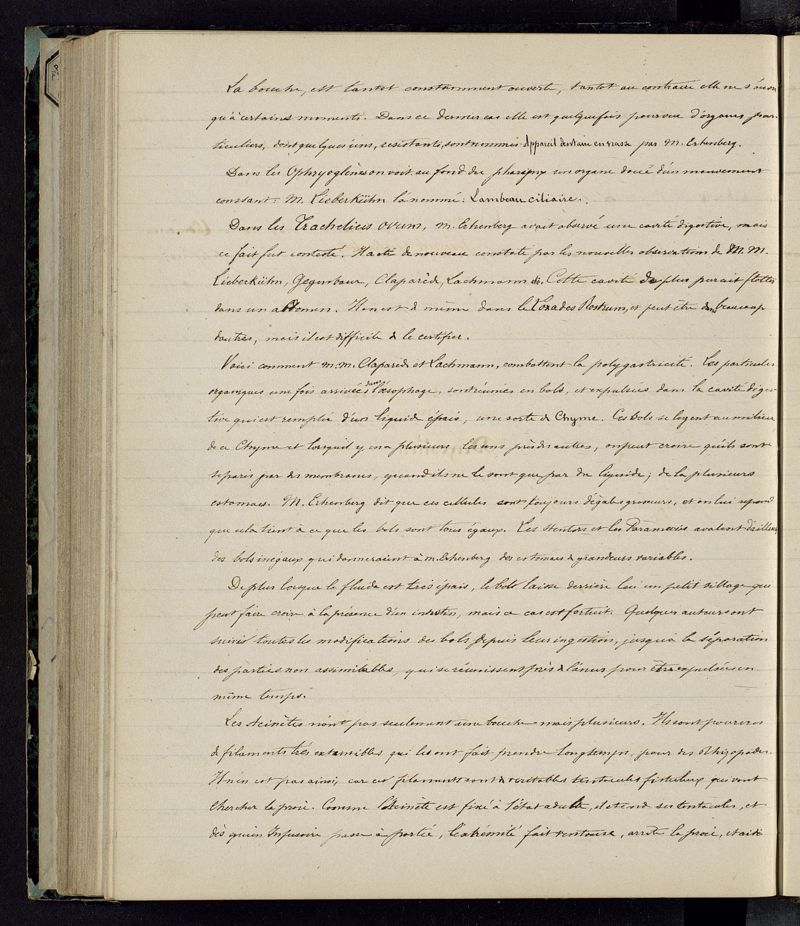 La bouche, est tantot constamment ouverte, tantot au contraire elle ne s'ouvre
qu'à certains moments. Dans ce dernier cas elle est quelquefois pourvue d'organes par-
ticuliers, dont quelques uns, résistants, sont nommés Appareil dentaire en nasse par M. Erhenberg.
Dans les Ophryoglènes on voit au fond du pharynx un organe doué d'un mouvement
constant. M. Lieberkühn l'a nommé: Lambeau ciliaire.
Dans les Trachelius ovum, M. Erhenberg avait observé une cavité digestive, mais
ce fait fut contesté. Il a été de nouveau constaté par les nouvelles observations de M.M.
Lieberkühn, Gegenbaur, Claparède, Lachmann &. Cette cavité de plus parait flotter
dans un abdomen. Il en est de même dans le Loxodes Rostrum, et peut être dans beaucoup
d'autres, mais il est difficile de le certifier.
Voici comment M.M. Claparède et Lachmann, combattent la polygastricité. Les particules
organiques une fois arrivées dans l'œsophage, sont réunies en bols, et expulsées dans la cavité diges-
tive qui est remplie d'un liquide épais, une sorte de Chyme. Ces bols se logent au milieu
de ce Chyme et lorsqu'il y en a plusieurs, les uns près des autres, on peut croire qu'ils sont
séparés par des membranes, quand ils ne le sont que par du liquide; de là plusieurs
estomacs. M. Erhenberg dit que ces cellules sont toujours d'égales grosseurs, et on lui répond
que cela tient à ce que les bols sont tous égaux. Les Stentors et les Paramecies avalent d'ailleurs
des bols inégaux qui donneraient à M. Erhenberg des estomacs de grandeurs variables.
De plus lorsque le fluide est très épais, le bols laisse derrière lui un petit sillage qui
peut faire croire à la présence d'un intestin, mais ce cas est fortuit. Quelques auteurs ont
suivis toutes les modifications des bols, depuis leur ingestion, jusqu'à la séparation
des parties non assimilables, qui se réunissent près de l'anus pour être expulsées en
même temps.
Les Acinètes n'ont pas seulement une bouche mais plusieurs. Ils sont pourvus
de filaments très extensibles qui les ont fait prendre longtemps, pour des Rhizopodes.
Il n'en est pas ainsi, car ces filaments sont de véritables tentacules fistuleux qui vont
chercher la proie. Comme l'Acinète est fixé à l'état adulte, il étend ses tentacules, et
dès qu'un Infusoire passe à portée, l'extrémité fait ventouse, arrête la proie, et aide